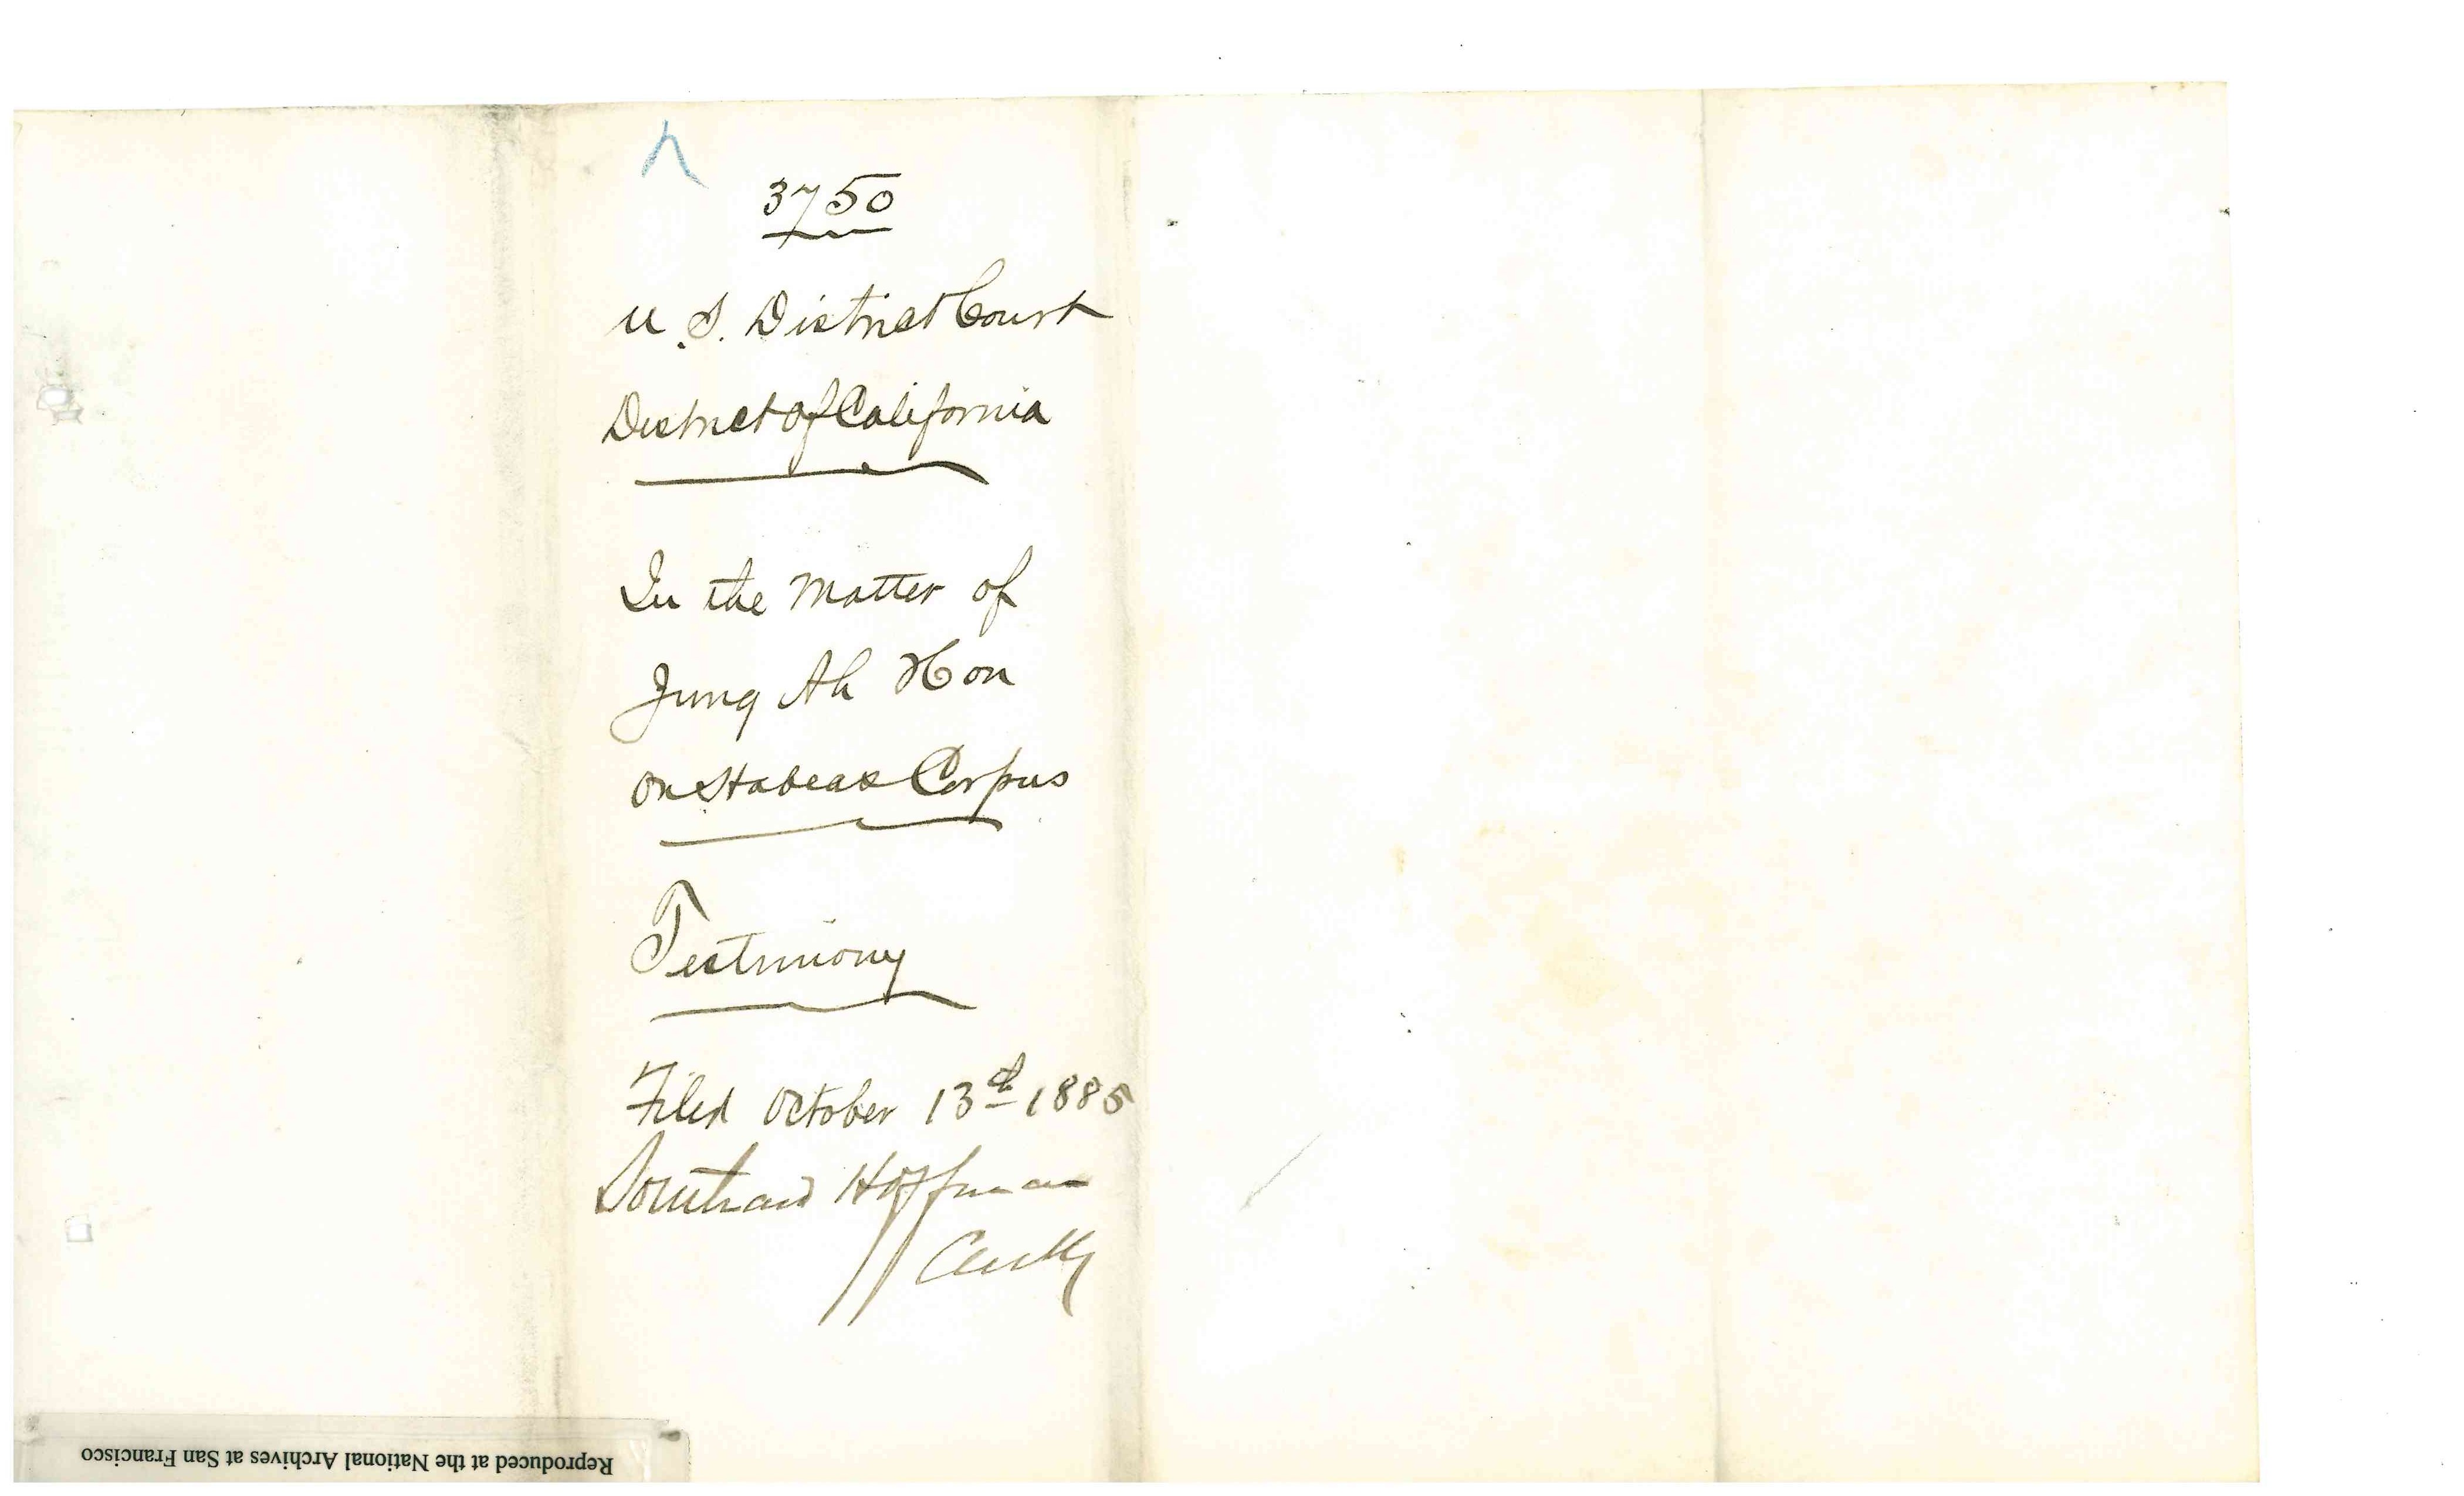 3750
U.S. District Court
District of California
In the Matter of
Jung Ah Hon
on Habeas Corpus
Testimony
Filed October 13th 1885
Southard Hoffman
Clerk
Reproduced at the National Archives at San Francisco